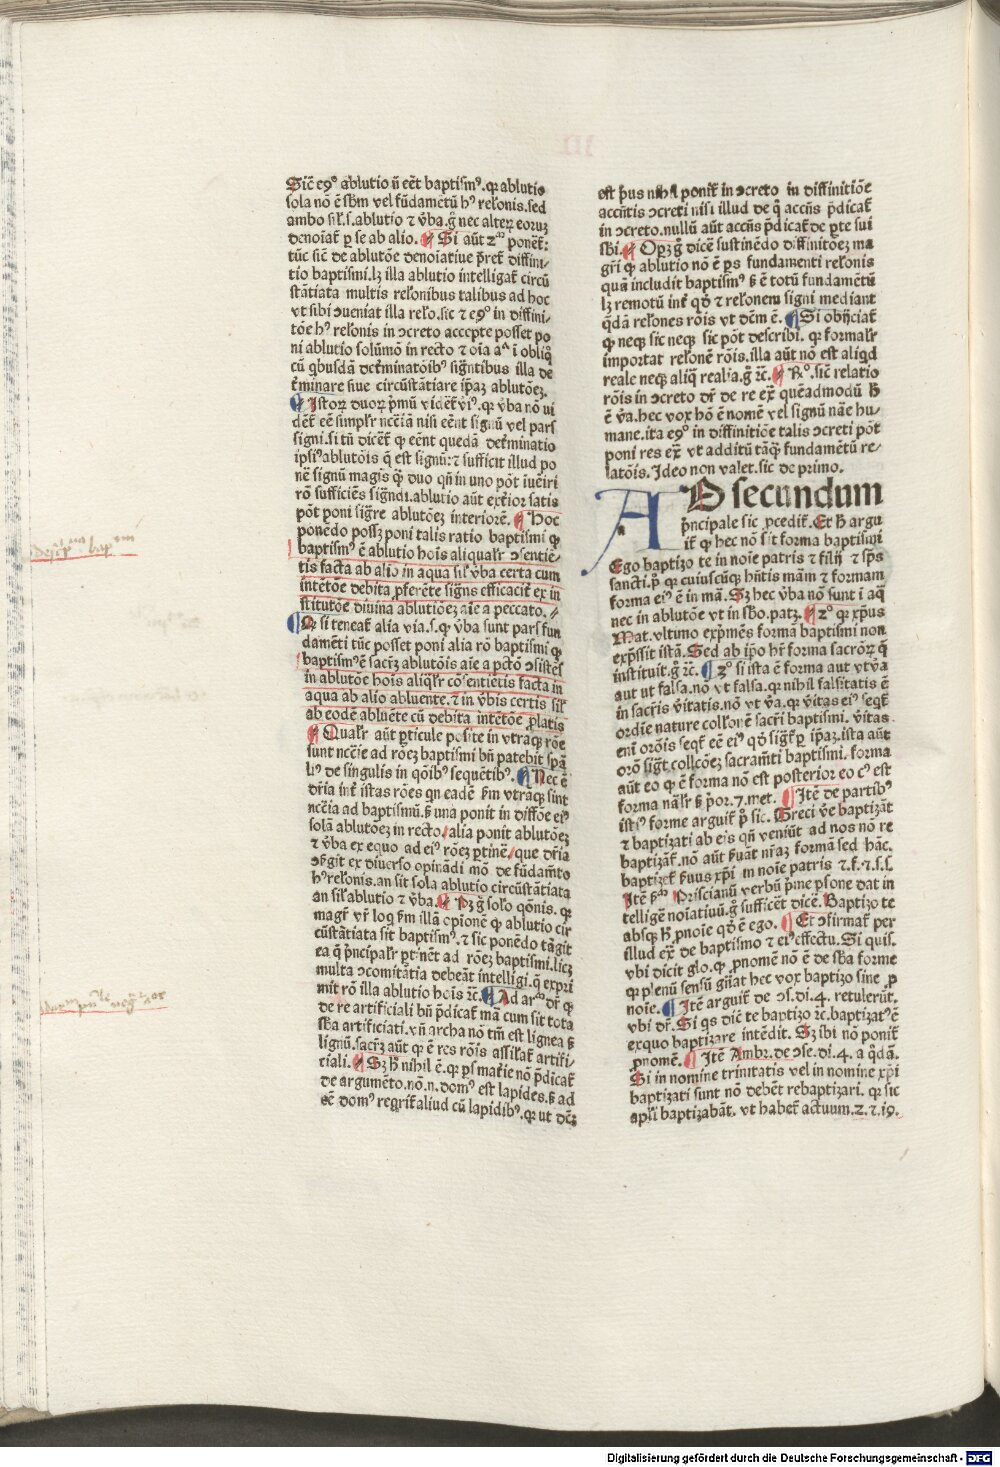 Sic̄ eg° ablutio ū eēt baptismꝰ. qꝛ ablutio
sola nō ē sb̄m vel fūdamētū hꝰ rel̄onis. sed
ambo sil̄. s. ablutio ⁊ v̄ba. g̊ nec alteꝝ eoꝝ
denoīat̄ ꝑ se ab alio. ¶ Si aūt 2ᵐ ponet̄:
tūc sic̄ de ablutōe denoīatiue p̄ret̄ diffini-
tio baptismi. lꝫ illa ablutio intelligat̄ circū
stātiata multis rel̄onibus talibus ad hoc
vt sibi ↄueniat illa rel̄o. sic ⁊ eg° in diffini-
tōe hꝰ rel̄onis in ↄcreto accepte posset po
ni ablutio solūmō in recto ⁊ oīa aᵃ ī obliq̊
cū q̇busdā det̄minatōibꝰ sig̊ntibus illa de
t̄minare siue circūstātiare ip̄aꝫ ablutōeꝫ.
¶ Istoꝝ duoꝝ p̄mū videt̄ viꝰ. qꝛ v̄ba nō vi
det̄ eē simpl̄r nc̄c̄iā nisi eēnt signū vel pars
signi. si tū dicet̄ ꝙ eēnt quedā det̄minatio
ipsiꝰ ablutōis q̄ est signū: ⁊ sufficit illud po
nē signū magis q̄ duo qn̄ in uno pōt iueīri
rō sufficiēs sig̊ndi. ablutio aūt ext̄ior satis
pōt poni sig̊re ablutōeꝫ interiorē. ¶ Hoc
ponēdo possꝫ poni talis ratio baptismi ꝙ
baptismꝰ ē ablutio hoīs aliqual̄r ↄsentiē-
tis facta ab alio in aqua sil̄ v̄ba certa cum
intētōe debita ꝓferēte signs efficacit̄ ex in
stitutōe diuina ablutiōeꝫ aīe a peccato.
¶ Qꝛ si teneat̄ alia via. s. ꝙ v̄ba sunt pars fun
damēti tūc posset poni alia rō baptismi ꝙ
baptismꝰ ē sacr̄ꝫ ablutōis aīe a pctō ↄsistēs
in ablutōe hoīs aliql̄r cōsentietis facta in
aqua ab alio abluente. ⁊ in v̄bis certis sil̄
ab eodē abluēte cū debita intētōe ꝓlatis
¶ Qual̄r aūt ꝑticule posite in vtraqꝫ rōe
sunt nc̄c̄ie ad rōeꝫ baptismi bn̄ patebit spā
liꝰ de singulis in qōibꝰ sequētibꝰ. ¶ Nec ē
dr̄ia int̄ istas rōes qn eadē ẜm vtraqꝫ sint
nc̄c̄ia ad baptismū. ẜ una ponit in diffōe eiꝰ
solā ablutōeꝫ in recto, alia ponit ablutōeꝫ
⁊ v̄ba ex equo ad eiꝰ rōeꝫ ꝑtinē. que dr̄ia
ↄtīgit ex diuerso opinādi mō de fūdam̄to
hꝰ rel̄onis. an sit sola ablutio circūstātiata
an sil̄ ablutio ⁊ v̄ba. ¶ Pꝫ g̊ solō qōnis. qꝛ
magr̄ vr̄ loq̇ ẜm illā opionē ꝙ ablutio cir
cūstātiata sit baptismꝰ. ⁊ sic ponēdo tāgit
ea q̄ p̄ncipal̄r ꝑtinēt ad rōeꝫ baptismi. licꝫ
multa ↄcomitātia debeāt intelligi. q̄ expri
mit rō illa ablutio hoīs ⁊c̄. ¶ Ad arᵐ dr̄ ꝙ
de re artificiali bn̄ p̄dicat̄ mā cum sit tota
sb̄a artificiati. vn̄ archa nō tm̄ est lignea ẜ
lignū. sacr̄ꝫ aūt qꝛ ē res rōis assilat̄ artifi-
ciali. ¶ Sꝫ ħ nihil ē. qꝛ ps matīe nō p̄dicat̄
de argumēto. nō. n. domꝰ est lapides. ẜ ad
eē domꝰ req̇rit̄ aliud cū lapidibꝰ. qꝛ ut dēꝫ
est p̄us nihil ponit̄ in ↄcreto in diffinitiōe
accn̄tis ↄcreti nisi illud de q̊ accn̄s p̄dicat̄
in ↄcreto. nullū aūt accn̄s p̄dicat̄ de ꝑte sui
sb̄i. ¶ Opꝫ g̊ dicē sustinēdo diffinitōeꝫ ma
gr̄i ꝙ ablutio nō ē ps fundamenti rel̄onis
quā includit baptismꝰ ẜ ē totū fundamētū
lꝫ remotū int̄ qd̄ ⁊ rel̄onem signi mediant
q̄dā rel̄ones rōis vt dēm ē. ¶ Si obijciat̄
ꝙ neqꝫ sic neqꝫ sic pōt describi. qꝛ formal̄r
importat rel̄onē rōis. illa aūt nō est aliqd
reale neqꝫ aliq̄ realia. g̊ ⁊c̄. ¶ R°. sic̄ relatio
rōis in ↄcreto dr̄ de re ex̄ quēadmodū ħ
ē v̄a. hec vox hō ē nomē vel signū nāe hu-
mane. ita eg° in diffinitiōe talis ↄcreti pōt
poni res ex̄ vt additū tāq̄ fundamētū re-
latōis. Ideo non valet. sic de primo.
AD secundum
p̄ncipale sic ꝓcedit̄. Et ħ argu
it̄ ꝙ hec nō sit forma baptismi
Ego baptizo te in noīe patris ⁊ filij ⁊ sp̄s
sancti. p° qꝛ cuiuscūqꝫ hn̄tis mām ⁊ formam
forma eiꝰ ē in mā. Sꝫ hec v̄ba nō sunt i aq̄
nec in ablutōe vt in sb̄o. patꝫ. ¶ 2° qꝛ xp̄us
Mat. vltimo exp̄mēs forma baptismi non
exp̄ssit istā. Sed ab ip̄o hr̄ forma sacroꝝ q̄
instituit. g̊ ⁊c̄. ¶ 3° si ista ē forma aut vt v̄a
aut ut falsa. nō vt falsa. qꝛ nihil falsitatis ē
in sacr̄is v̄itatis. nō ut v̄a. qꝛ v̄itas eiꝰ seqt̄
ordīe nature coll̄onē sacr̄i baptismi. v̄itas
eni oröis seqt̄ eē eiꝰ qd̄ sigt̄ ꝑ ip̄aꝫ. ista aūt
orō sigt̄ collc̄ōeꝫ sacram̄ti baptismi. forma
aūt eo ꝙ ē forma nō est posterior eo cꝰ est
forma nāl̄r ẜ p̄or. 7. met. ¶ Itē de partibꝰ
istiꝰ forme arguit̄ p° sic. Greci v̄e baptizāt
⁊ baptizati ab eis qn̄ veniūt ad nos nō re
baptizāt̄. nō aūt ẜuāt nr̄aꝫ formā sed hāc.
baptizet̄ ẜuus xp̄i in noīe patris ⁊. f. ⁊. s. s.
Itē ẜm Priscianū verbū p̄me ꝑsone dat in
telligē noīatiuū. g̊ sufficēt dicē. Baptizo te
absqꝫ ħ ꝓnoīe qd̄ ē ego. ¶ Et ↄfirmat̄ per
illud ex̄ de baptismo ⁊ eiꝰ effectu. Si quis.
vbi dicit glo. ꝙ ꝓnomē nō ē de sb̄a forme
qꝛ plenū sensū gn̄at hec vox baptizo sine ꝓ
noīe. ¶ Itē arguit̄ de ↄs. di. 4. retulerūt.
vbi dr̄. Si q̇s dic̄ te baptizo ⁊c̄. baptizatꝰ ē
exquo baptizare intēdit. Sꝫ ibi nō ponit̄
ꝓnomē. ¶ Itē Ambr. de ↄse. di. 4. a q̇dā.
Si in nomine trinitatis vel in nomine xp̄i
baptizati sunt nō debēt rebaptizari. qꝛ sic
apl̄i baptizabāt. vt habet̄ actuum. 2. ⁊. 19.
Digitalisierung gefördert durch die Deutsche Forschungsgemeinschaft - DFG